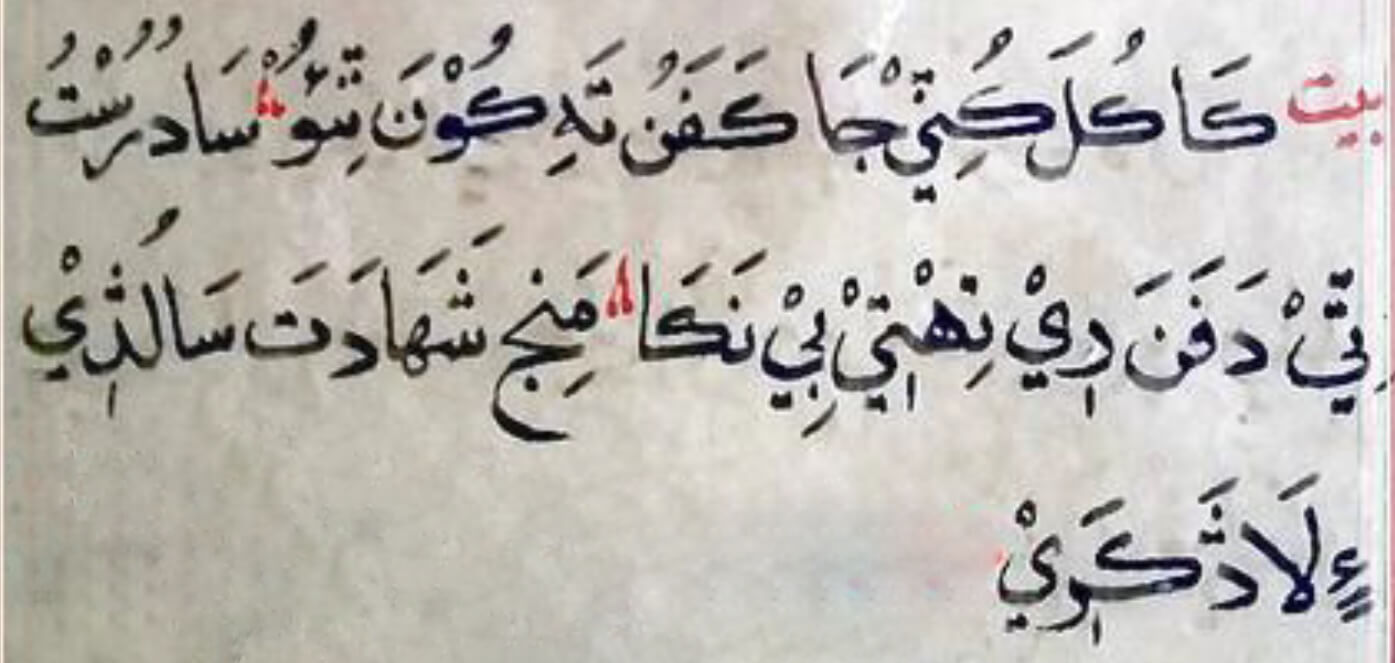 بيت كَا كُلَ كُنِيْ جَا كَفَنُ تَهِ كُوْنَ تِنِئُوْ سَا دُرُسْتُ
تِيْ دَفَنَ دِيْ تِهْتِيْ بِيْ نَكَا مَنِجِ شَهَادَتَ سَالُذِيْ
ءِلَاذَكَرِيْ